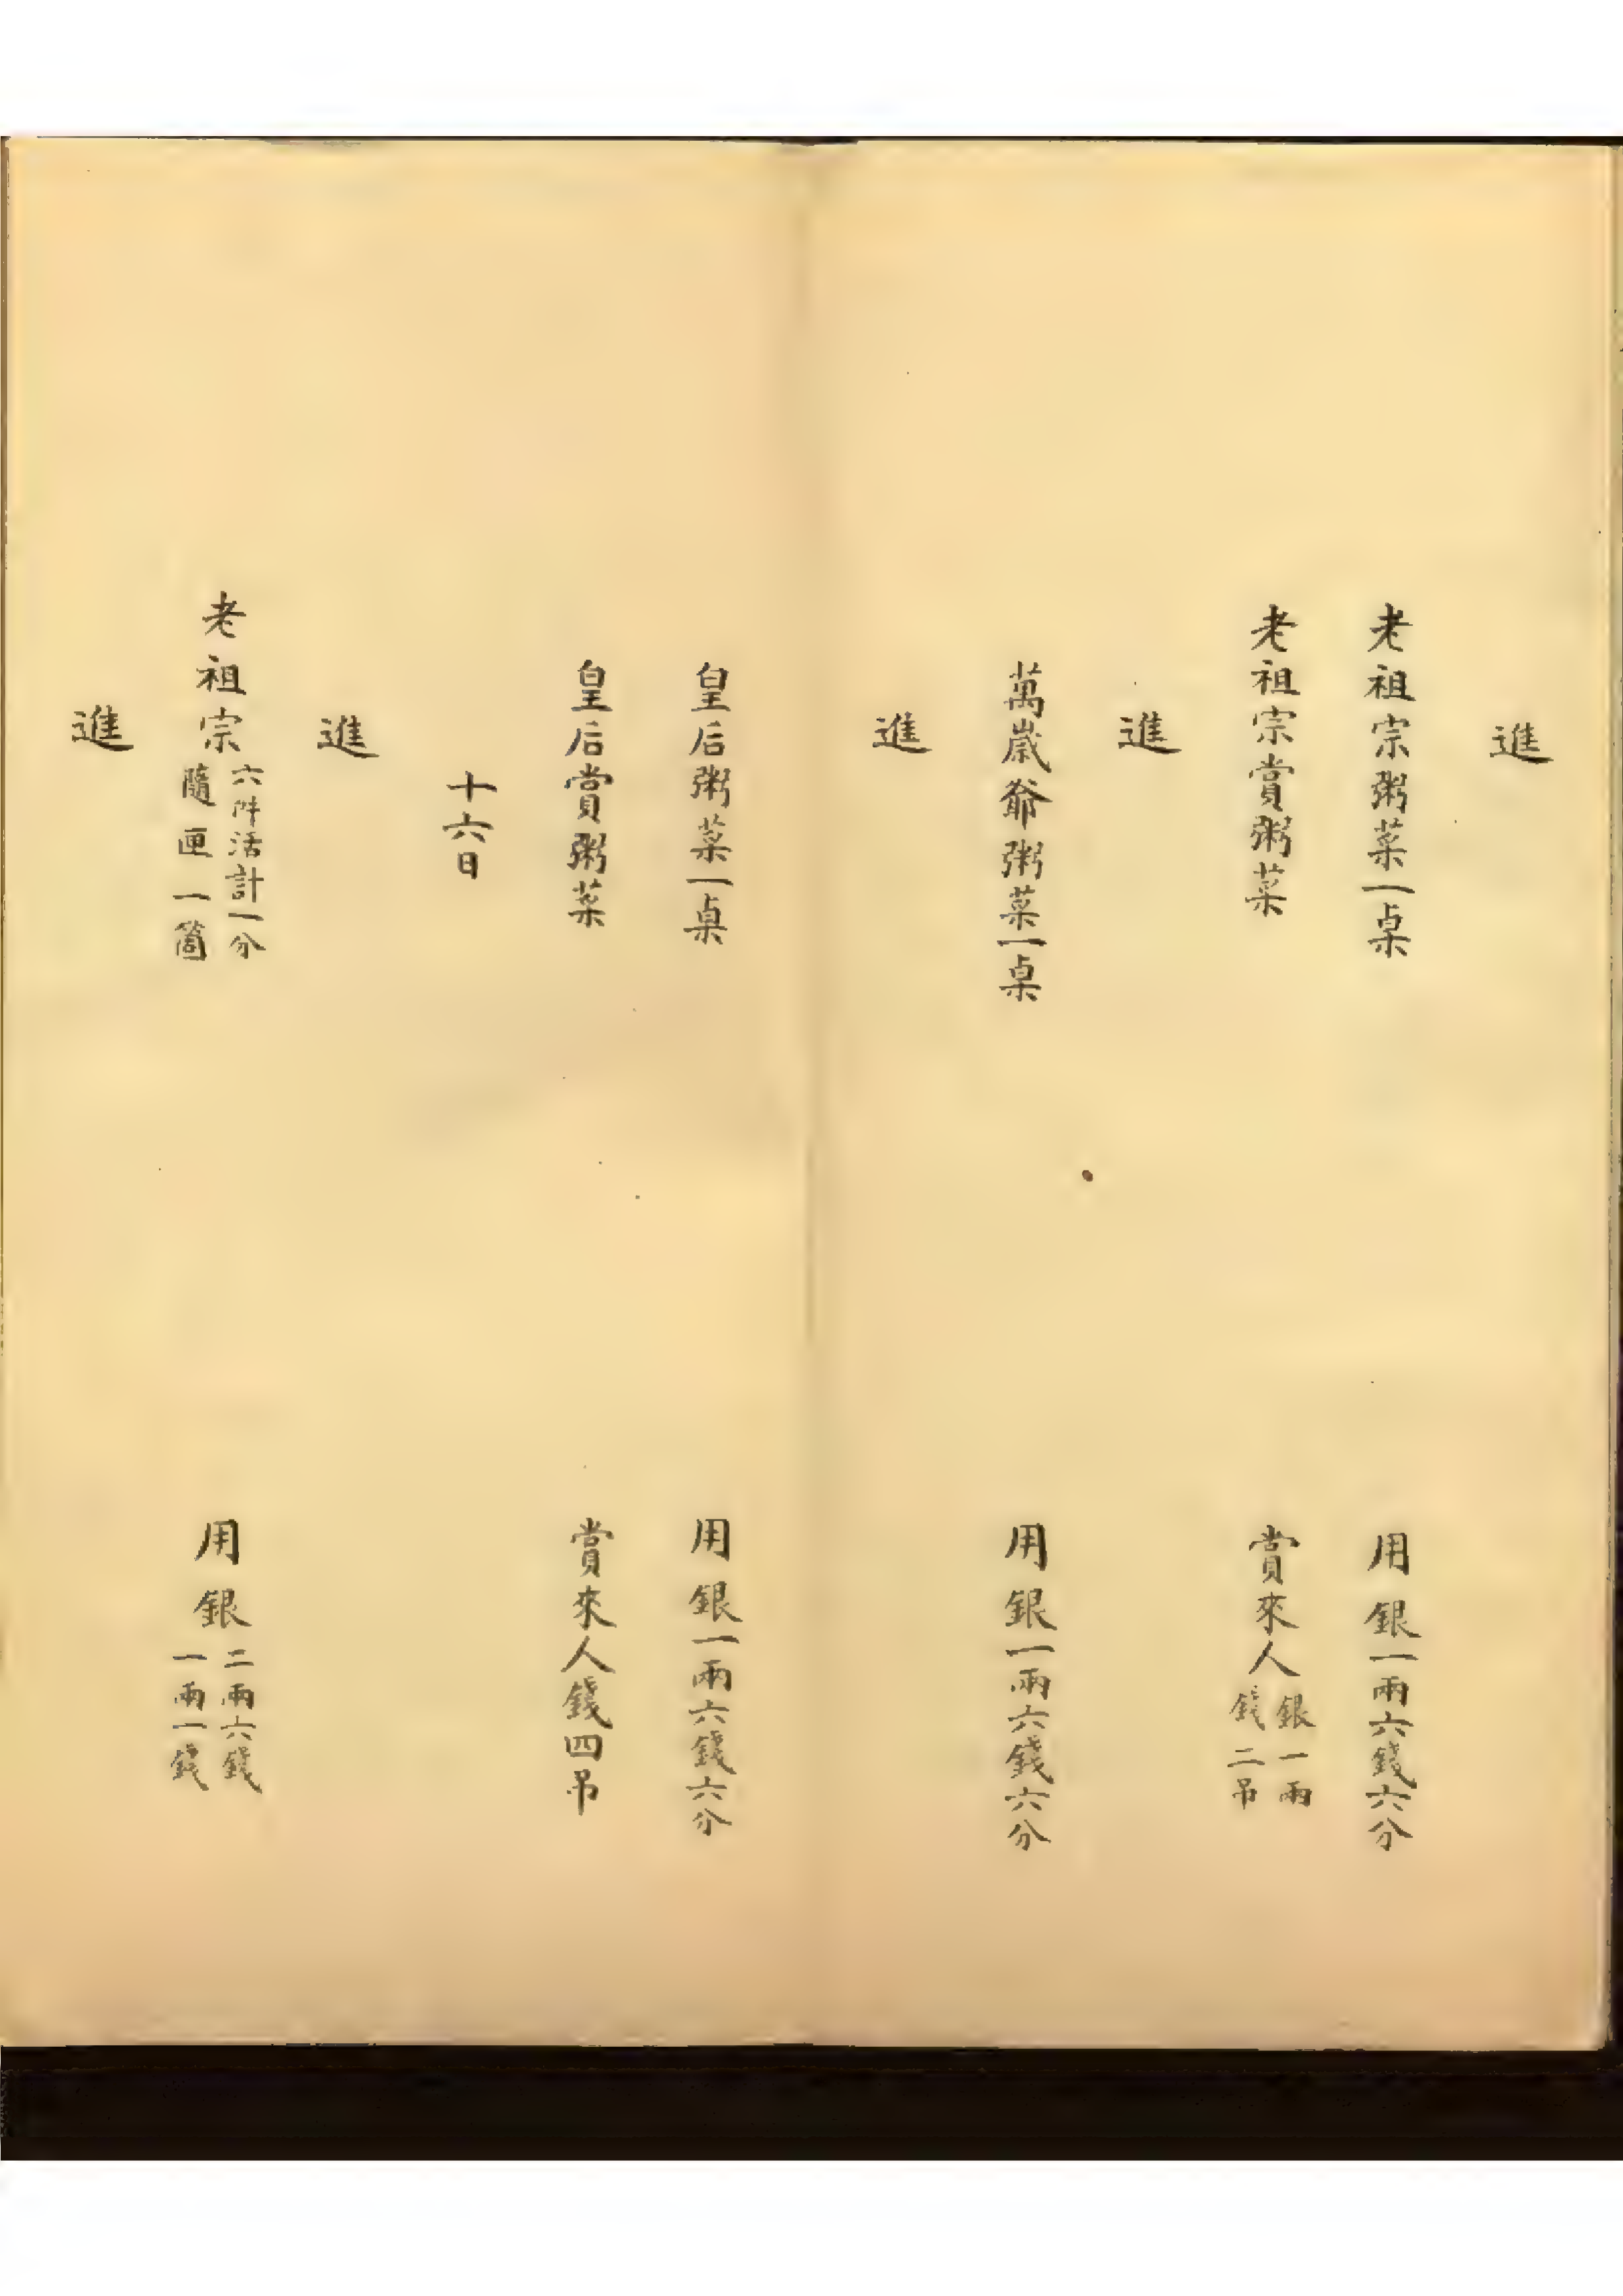 進
老祖宗粥菜一桌 用銀一兩六錢六分
老祖宗賞粥菜 賞來人 銀一兩 錢二吊
進
萬歲爺粥菜一桌 用銀一兩六錢六分
進
皇后粥菜一桌 用銀一兩六錢六分
皇后賞粥菜 賞來人錢四吊
十六日
進
老祖宗 六件活計一分 隨匣一箇 用銀 二兩六錢 一兩一錢
進